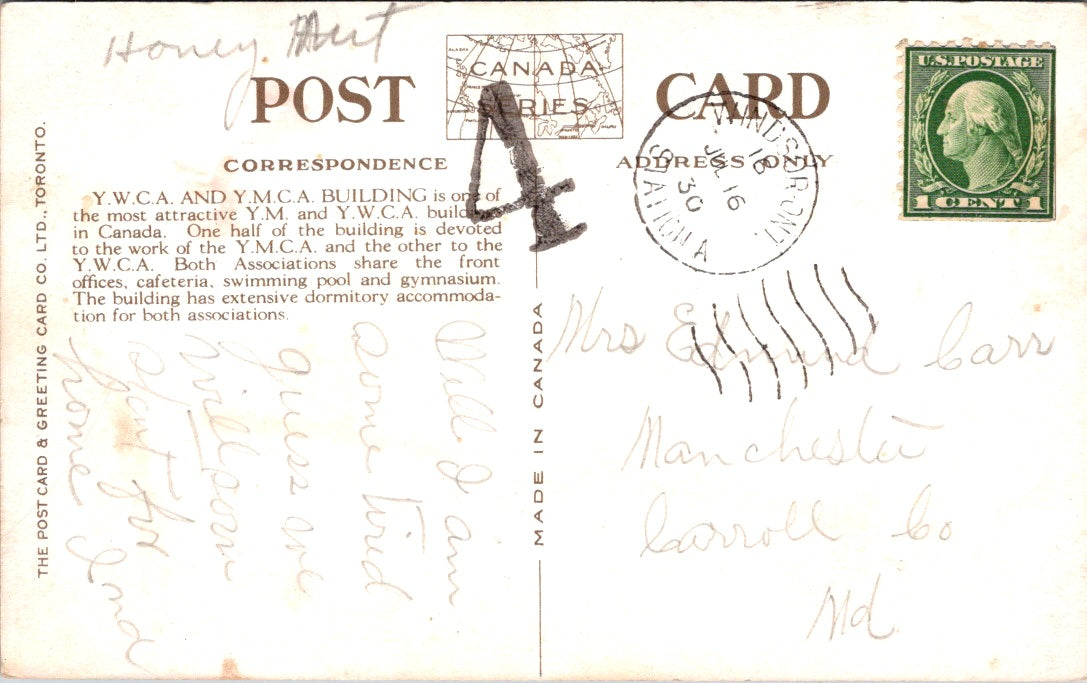 Honey Hut
POST CARD
CANADA
SERIES
CORRESPONDENCE
ADDRESS ONLY
Y.W.C.A. AND Y.M.C.A. BUILDING is one of
the most attractive Y.M. and Y.W.C.A. buildings
in Canada. One half of the building is devoted
to the work of the Y.M.C.A. and the other to the
Y.W.C.A. Both Associations share the front
offices, cafeteria, swimming pool and gymnasium.
The building has extensive dormitory accommoda-
tion for both associations.
THE POSTCARD & GREETING CARD CO. LTD., TORONTO.
MADE IN CANADA
Well I am
some tired
guess we
will soon
start for
home
4
WINDSOR ONT.
STATION A
16
JUL 16
30
U.S. POSTAGE
1 CENT 1
Mrs Edmund Carr
Manchester
Carroll Co
Md.